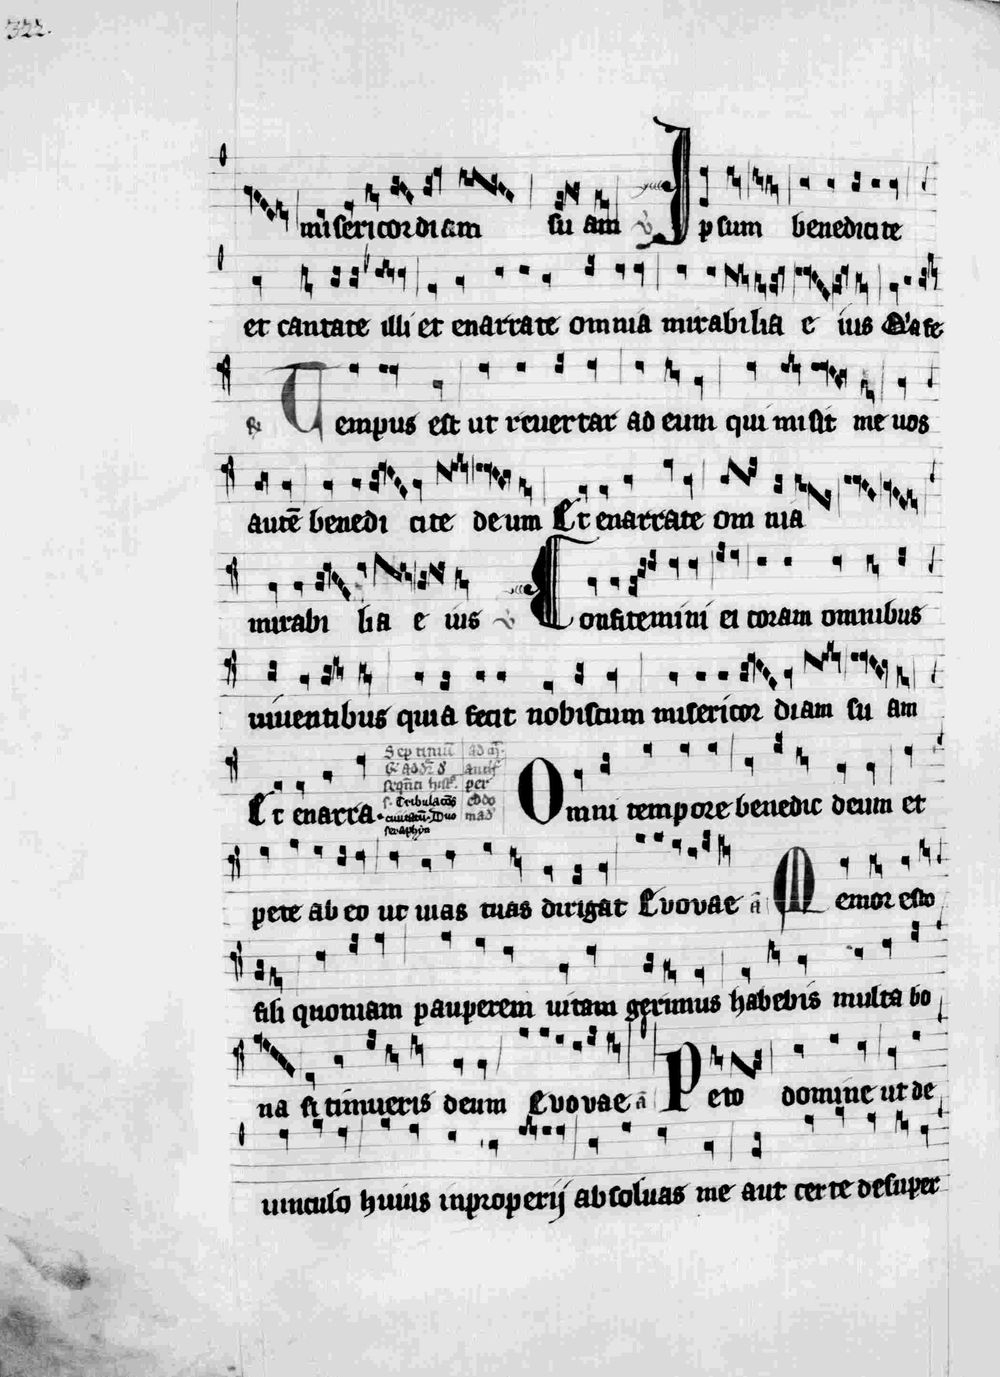 322.
misericordiam su am v Ipsum benedicite
et cantate illi et enarrate omnia mirabilia e ius
R Tempus est ut revertar ad eum qui misit me uos
autē benedi cite deum Et enarrate om nia
mirabi lia e ius v Confitemini ei coram omnibus
uiuentibus quia fecit nobiscum misericor diam su am
Et enarra
Omni tempore benedic deum et
pete ab eo ut uias tuas dirigat Evovae ā Memor esto
fili quoniam pauperem uitam gerimus habebis multa bo
na si timueris deum Evovae ā Peto domine ut de
uinculo huius inproperij absoluas me aut certe desuper